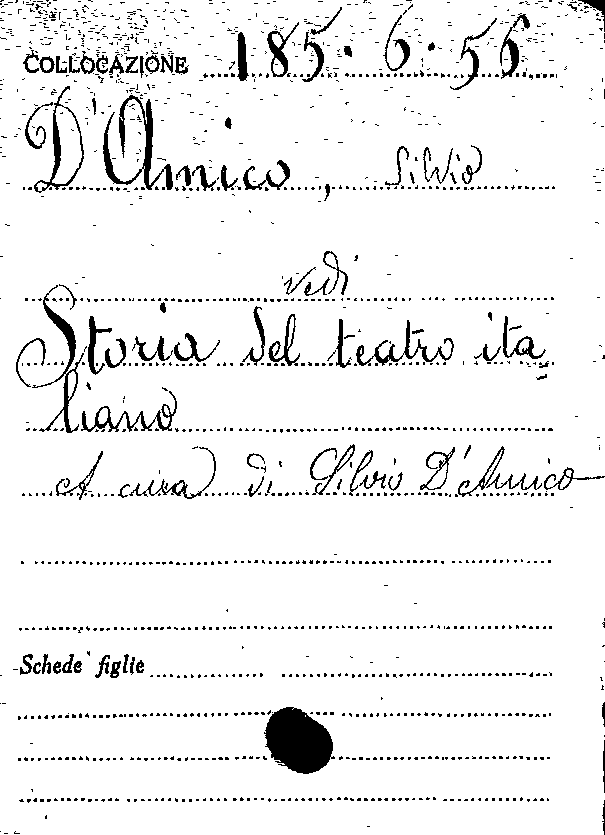 COLLOCAZIONE 185.6.56
D'Amico, Silvio
vedi
Storia del teatro ita-
liano
A cura di Silvio D'Amico
Schede figlie